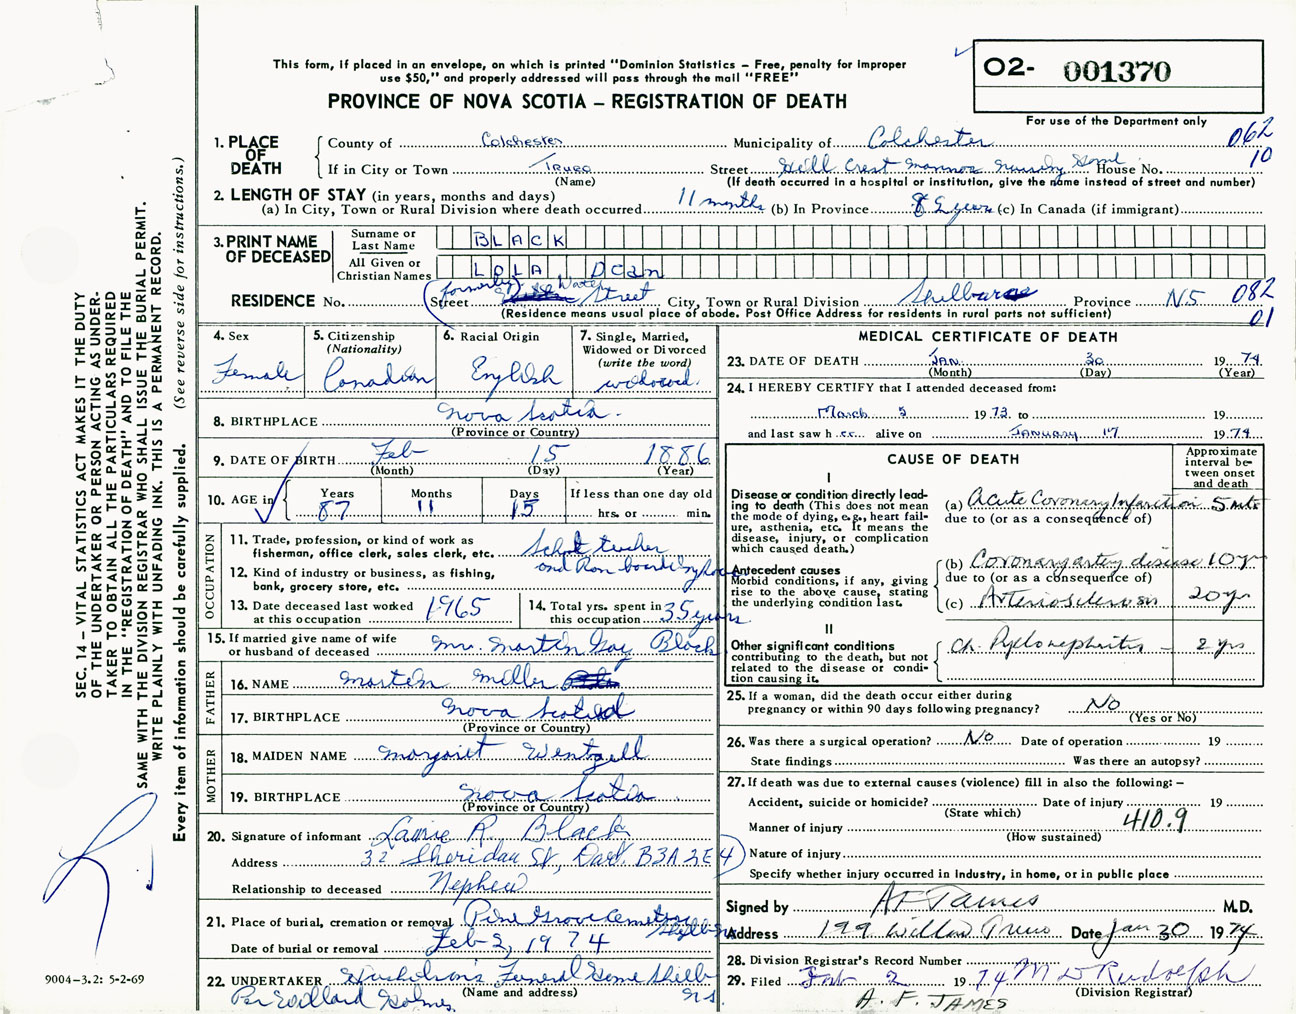 This form, if placed in an envelope, on which is printed "Dominion Statistics – Free, penalty for improper
use $50," and properly addressed will pass through the mail "FREE"
PROVINCE OF NOVA SCOTIA – REGISTRATION OF DEATH
O2- 001370
For use of the Department only
062
10
1. PLACE OF DEATH
County of Colchester Municipality of Colchester
If in City or Town Truro Street Hill Crest Mannor Nursing Home House No.
(Name) (If death occurred in a hospital or institution, give the name instead of street and number)
2. LENGTH OF STAY (in years, months and days)
(a) In City, Town or Rural Division where death occurred 11 months (b) In Province years (c) In Canada (if immigrant)
3. PRINT NAME OF DECEASED
Surname or Last Name BLACK
All Given or Christian Names LOLA Dean
RESIDENCE No. (formerly) Street Water Street City, Town or Rural Division Shelburne Province NS 082
01
(Residence means usual place of abode. Post Office Address for residents in rural parts not sufficient)
4. Sex Female
5. Citizenship (Nationality) Canadian
6. Racial Origin English
7. Single, Married, Widowed or Divorced (write the word) widowed.
8. BIRTHPLACE Nova Scotia.
(Province or Country)
9. DATE OF BIRTH Feb 15 1886
(Month) (Day) (Year)
10. AGE in Years 87 Months 11 Days 15 If less than one day old hrs. or min.
OCCUPATION
11. Trade, profession, or kind of work as fisherman, office clerk, sales clerk, etc. School teacher
and Ran boarding
12. Kind of industry or business, as fishing, bank, grocery store, etc.
13. Date deceased last worked at this occupation 1965
14. Total yrs. spent in this occupation 35 years
15. If married give name of wife or husband of deceased Mr. Martin Gay Black
FATHER
16. NAME Martin Miller
17. BIRTHPLACE Nova Scotia
(Province or Country)
MOTHER
18. MAIDEN NAME Margaret Wentzell
19. BIRTHPLACE Nova Scotia
(Province or Country)
20. Signature of informant R. Black
Address 32 Sheridan St, Dart. B3A 2E4
Relationship to deceased Nephew
21. Place of burial, cremation or removal Pine Grove Cemetery
Date of burial or removal Feb 2, 1974
22. UNDERTAKER Funeral Home Shelb
(Name and address) NS
Per Holmes.
MEDICAL CERTIFICATE OF DEATH
23. DATE OF DEATH JAN. 30 1974
(Month) (Day) (Year)
24. I HEREBY CERTIFY that I attended deceased from:
March 5 1973 to 19
and last saw h er alive on JANUARY 17 1974
CAUSE OF DEATH
Approximate interval between onset and death
I
Disease or condition directly leading to death (This does not mean the mode of dying, e.g., heart failure, asthenia, etc. It means the disease, injury, or complication which caused death.)
(a) Acute Coronary Infarction 5 mts
due to (or as a consequence of)
Antecedent causes
Morbid conditions, if any, giving rise to the above cause, stating the underlying condition last.
(b) Coronary artery disease 10 yr
due to (or as a consequence of)
(c) Arteriosclerosis 20 yr
II
Other significant conditions contributing to the death, but not related to the disease or condition causing it.
Ch. Pyelonephritis – 2 yrs
25. If a woman, did the death occur either during pregnancy or within 90 days following pregnancy? No
(Yes or No)
26. Was there a surgical operation? No Date of operation 19
State findings Was there an autopsy?
27. If death was due to external causes (violence) fill in also the following:–
Accident, suicide or homicide? Date of injury 19
(State which)
Manner of injury 410.9
(How sustained)
Nature of injury
Specify whether injury occurred in industry, in home, or in public place
Signed by A F James M.D.
Address 199 Willow Truro Date Jan 30 1974
28. Division Registrar's Record Number
29. Filed Feb 2 1974 M D Rudolph
(Division Registrar)
A. F. JAMES
SEC. 14 – VITAL STATISTICS ACT MAKES IT THE DUTY
OF THE UNDERTAKER OR PERSON ACTING AS UNDER-
TAKER TO OBTAIN ALL THE PARTICULARS REQUIRED
IN THE "REGISTRATION OF DEATH" AND TO FILE THE
SAME WITH THE DIVISION REGISTRAR WHO SHALL ISSUE THE BURIAL PERMIT.
WRITE PLAINLY WITH UNFADING INK. THIS IS A PERMANENT RECORD.
Every item of information should be carefully supplied. (See reverse side for instructions.)
9004-3.2: 5-2-69